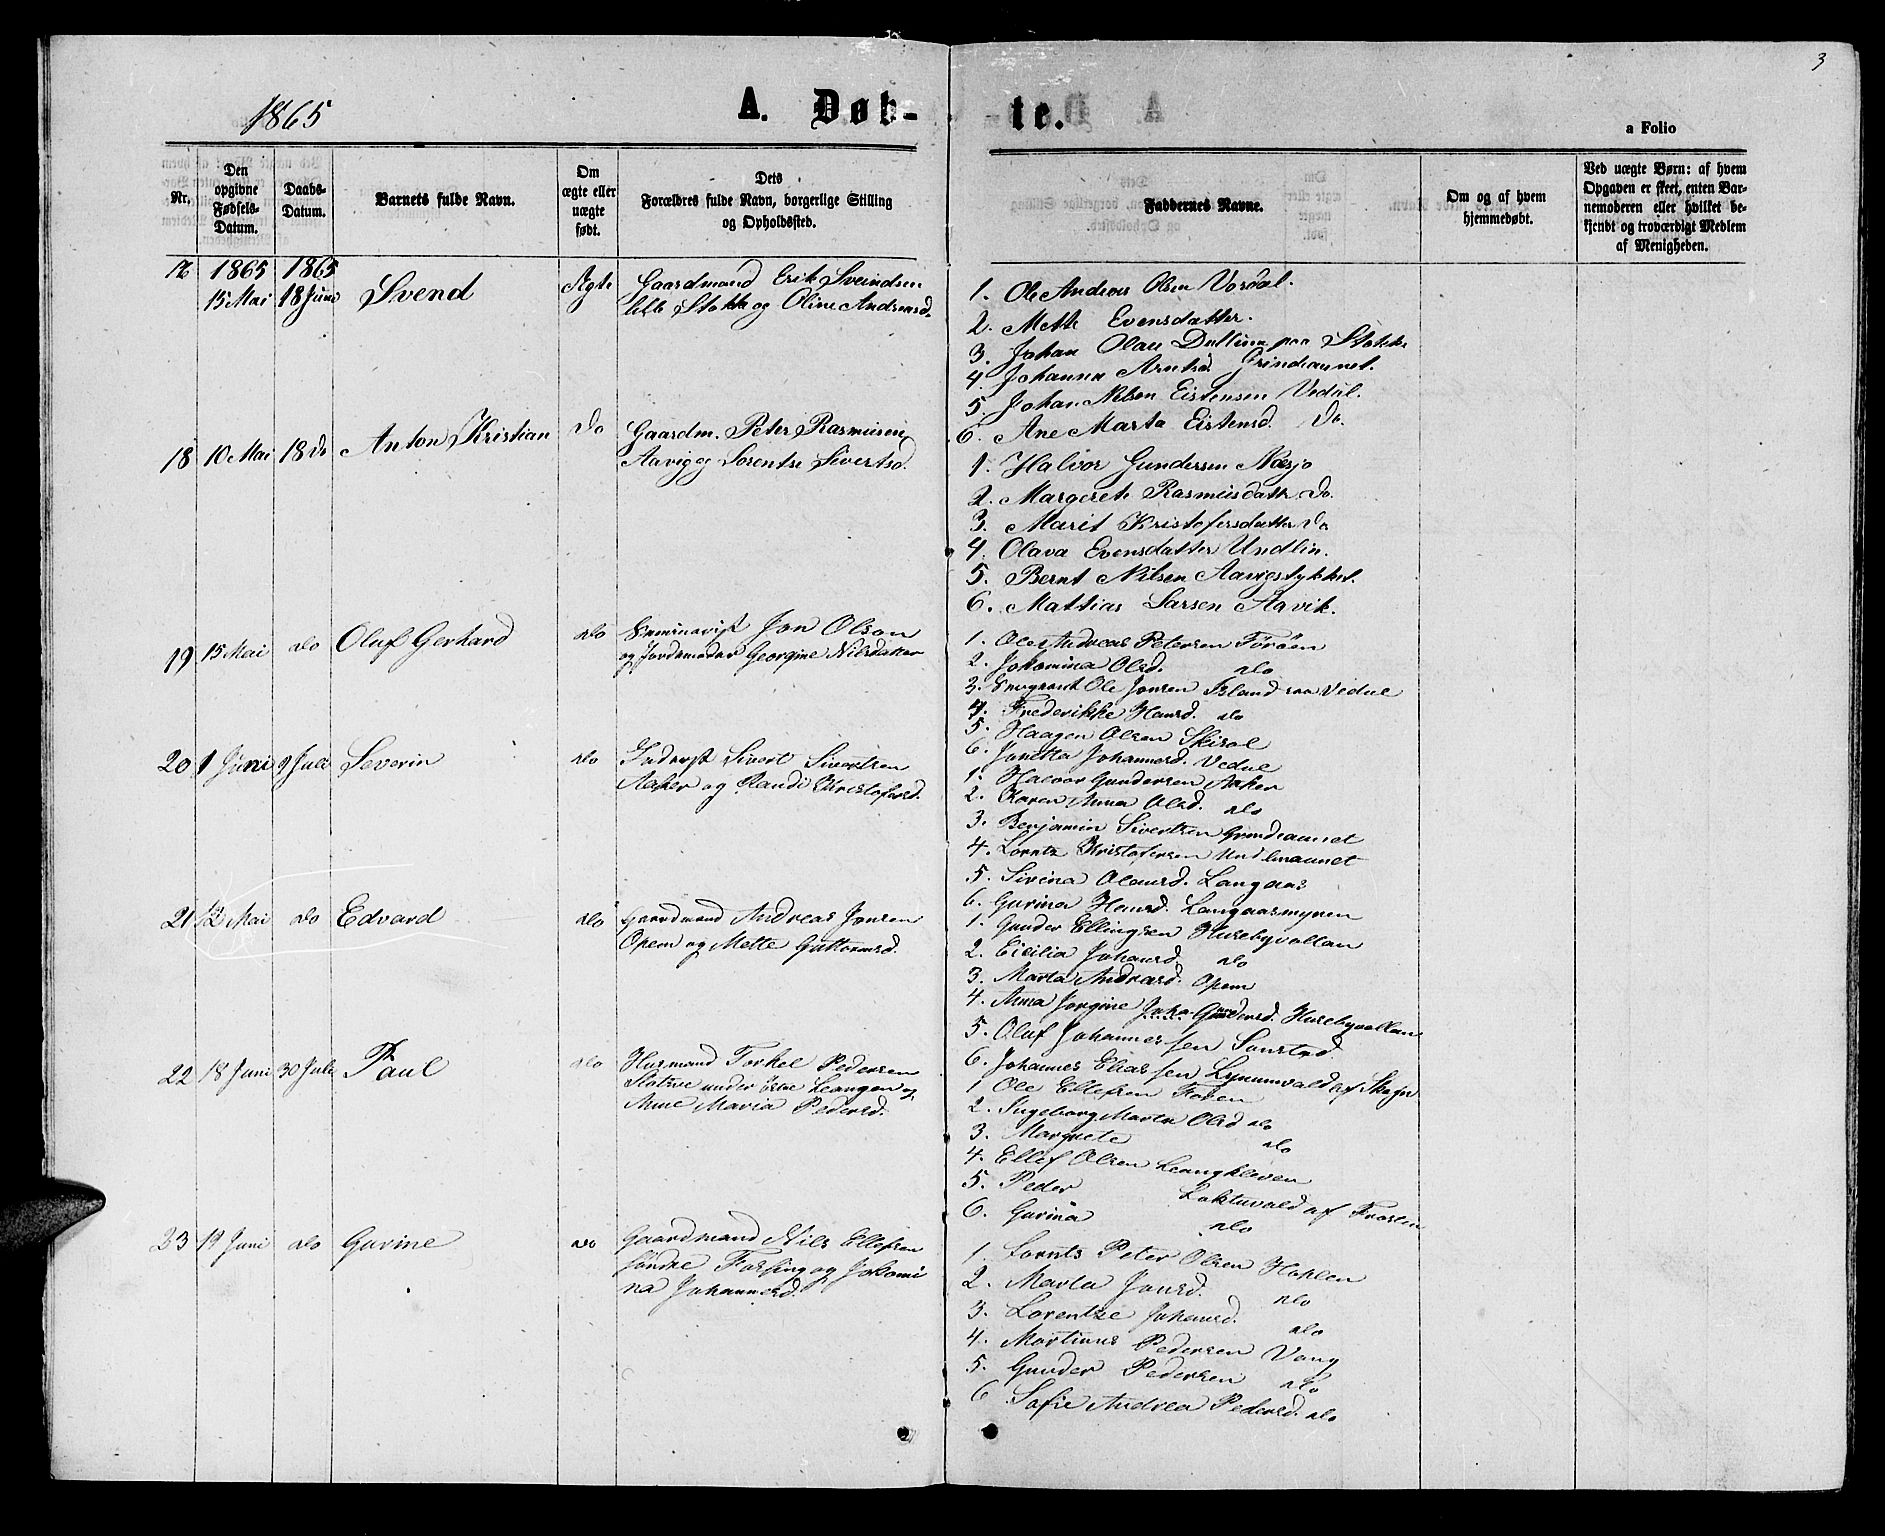 3
1865
A. Døb-
te.
a Folio
Nr.
Den opgivne Fødsels-Datum.
Daabs-Datum.
Barnets fulde Navn.
Om ægte eller uægte født.
Dets Forældres fulde Navn, borgerlige Stilling og Opholdssted.
Faddernes Navne.
Om og af hvem hjemmedøbt.
Ved uægte Børn: af hvem Opgaven er skeet, enten Barnemoderen eller hvilket bekjendt og troværdigt Medlem af Menigheden.
1865 1865
15 Mai 18 Juni Svend Ægte Gaardmand Erik Sveindsen
Stokk og Oline Andreasd.
1. Ole Andreas Olsen
2. Mette Evensdatter.
3. Johan Olau paa Stokk
4. Johanna Arntsd. Grindeaunet.
5. Johan Nilsen Eistensen Vedul.
6. Ane Marta Eistensd. Do.
18 10 Mai 18 do Anton Kristian Do Gaardm. Peter Rasmusen
Aavig og Lorentse Sivertsd.
1. Halvor Gundersen Næsjo
2. Margrete Rasmusdatt. Do.
3. Marit Kristofersdatter Do
4. Olava Evensdatter Undlin.
5. Bernt Nilsen Aavigstykket.
6. Mattias Larsen Aavik.
19 15 Mai do Oluf Gerhard do Seminarist Jon Olson
og Jordemoder Georgine Nilsdatter
1. Ole Andreas Petersen
2. Jokomina Olsd. do
3. Ole Jonsen Vedul
4. Frederikke Hansd. do
5. Haagen Olsen
6. Johannesd. Vedul
20 1 Juni 9 Juli Severin do Inderst Sivert Sivertsen
Aaker og Randi Kristofersd.
1. Halvor Gundersen Aaker
2. Karen Anna Olsd. do
3. Benjamin Sivertsen Grindeaunet
4. Lornts Kristofersen Undlinaunet
5. Sivina Olausd. Langaas
6. Gurina Hansd. Langaasmyren
21 12 Mai do Edvard do Gaardmand Andreas Jonsen
Opem og Mette Guttormsd.
1. Gunder Ellingsen Husebyvollan
2. Cicilia Johansd. do
3. Marta Andreasd. Opem
4. Anna Jorgine Gundersd. Husebyvollan
5. Oluf Johannessen
6. Johannes Eliassen af
22 18 Juni 30 Juli Paul do Husmand Torkel Pedersen
under Leangen og
Ane Maria Pedersd.
1 Ole Ellefsen
2. Ingeborg Marta Olsd do
3. Margrete do
4. Ellef Olsen Leangkleven
5. Peder af Frosten
6. Gurina do
23 19 Juni do Gurine do Gaardmand Nils Ellefsen
søndre og Jokomi
na Johannesd.
1. Lornts Peter Olsen
2. Marta Jonsd. do
3. Lorentze Johansd. do
4. Martinus Pedersen Vang
5. Gunder Pedersen do
6 Sofie Andrea Pedersd. do